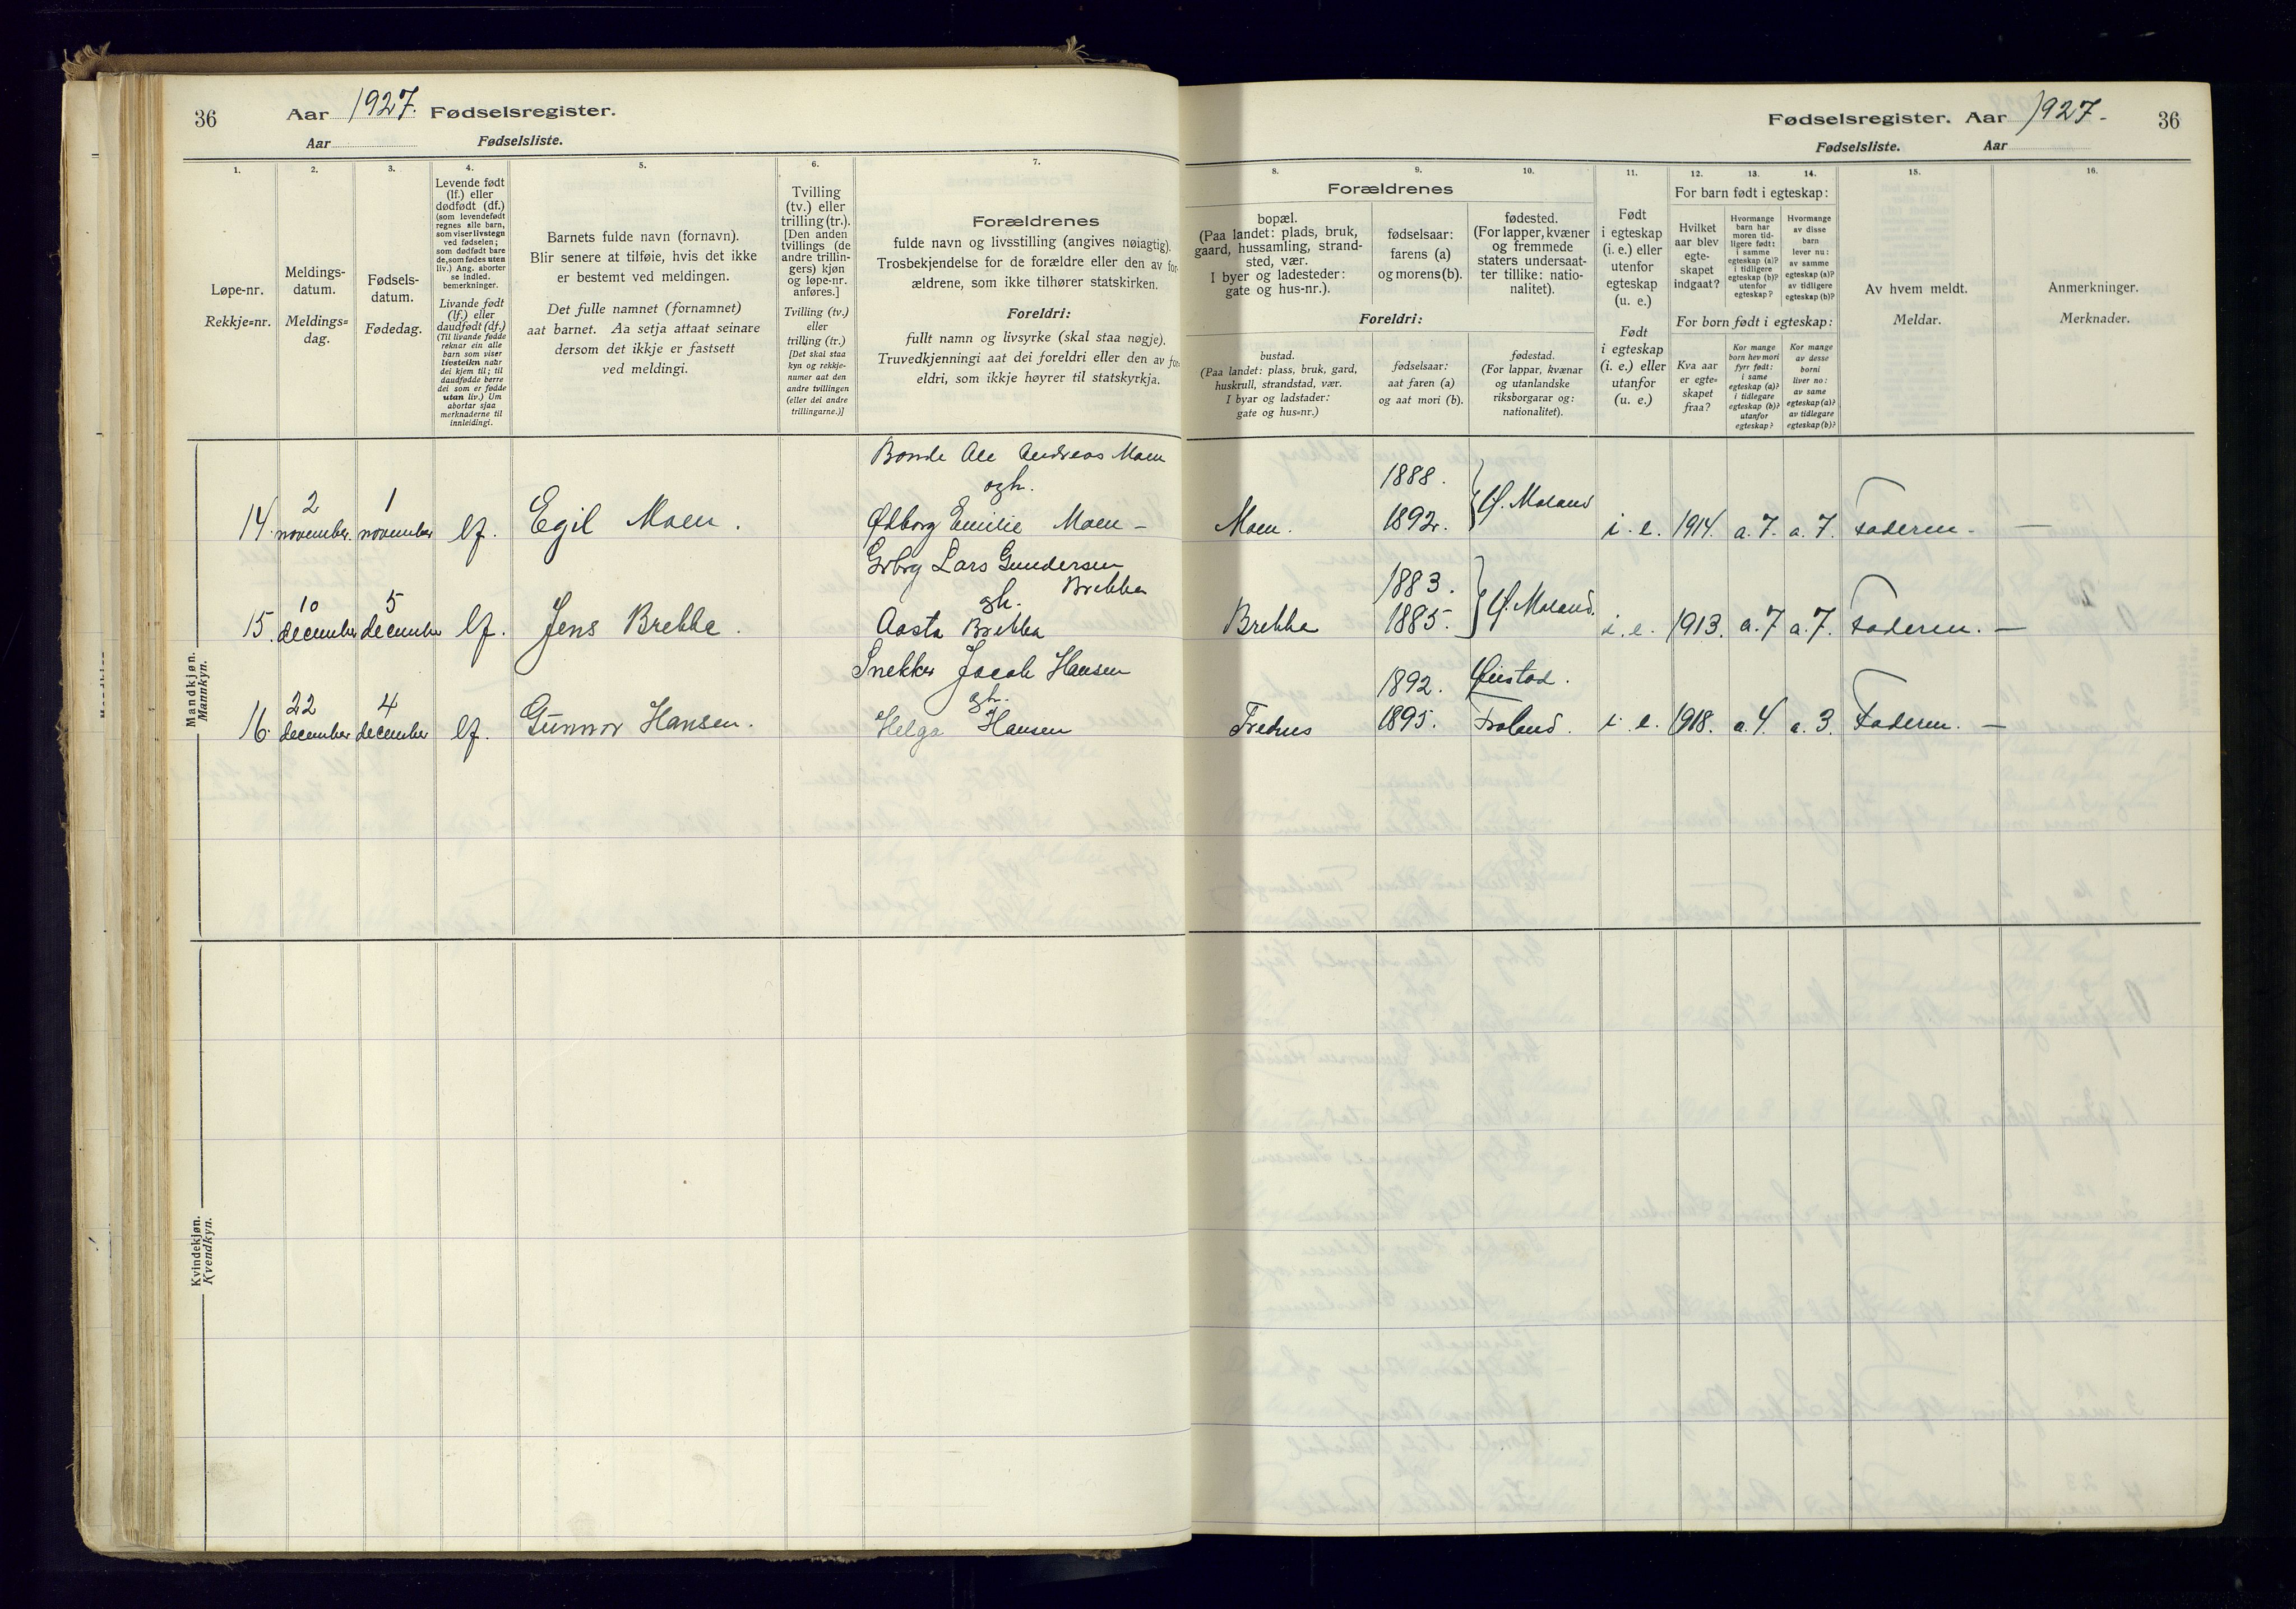 36
Aar 1927. Fødselsregister.
Aar Fødselsliste.
1.
Løpe-nr.
Rekkje=nr.
2.
Meldings-
datum.
Meldings=
dag.
3.
Fødsels-
datum.
Fødedag.
4.
Levende født
(lf.) eller
dødfødt (df.)
(som levendefødt
regnes alle barn,
som viser livstegn
ved fødselen;
som dødfødt bare
de, som fødes uten
liv.) Ang. aborter
se indled.
bemerkninger.
Livande født
(lf.) eller
daudfødt (df.)
(Til livande fødde
reknar ein alle
barn som viser
livsteikn naar
dei kjem til; til
daudfødde berre
dei som er fødde
utan liv.) Um
abortar sjaa
merknaderne til
innleidingi.
5.
Barnets fulde navn (fornavn).
Blir senere at tilføie, hvis det ikke
er bestemt ved meldingen.
Det fulle namnet (fornamnet)
aat barnet. Aa setja attaat seinare
dersom det ikkje er fastsett
ved meldingi.
6.
Tvilling
(tv.) eller
trilling (tr.).
[Den anden
tvillings (de
andre trillin-
gers) kjøn
og løpe-nr.
anføres.]
Tvilling (tv.)
eller
trilling (tr.)
[Det skal staa
kyn og rekkje-
numer aat den
andre tvillingen
(eller dei andre
trillingarne.)]
7.
Forældrenes
fulde navn og livsstilling (angives nøiagtig).
Trosbekjendelse for de forældre eller den av for-
ældrene, som ikke tilhører statskirken.
Foreldri:
fullt namn og livsyrke (skal staa nøgje).
Truvedkjenningi aat dei foreldri eller den av for-
eldri, som ikkje høyrer til statskyrkja.
Mandkjøn.
Mannkyn.
Bonde Ole Andreas Moen
ogh.
14. 2 november. 1 november lf. Egil Moen. Ødborg Emilie Moen –
Grbrg Lars Gundersen
Brekka
ogh.
15. 10 december 5 december lf. Jens Brekke. Aasta Brekka
Snekker Jacob Hansen
ogh.
16. 22 december 4 december lf. Gunnar Hansen. Helga Hansen
Kvindekjøn.
Kvendkyn.
Fødselsregister. Aar 1927. 36
Fødselsliste. Aar
8. 9. 10.
Forældrenes
bopæl.
(Paa landet: plads, bruk,
gaard, hussamling, strand-
sted, vær.
I byer og ladesteder:
gate og hus-nr.).
fødselsaar:
farens (a)
og morens (b).
fødested.
(For lapper, kvæner
og fremmede
staters undersaat-
ter tillike: natio-
nalitet).
Foreldri:
bustad.
(Paa landet: plass, bruk, gard,
huskrull, strandstad, vær.
I byar og ladstader:
gate og hus=nr.)
fødselsaar:
aat faren (a)
og aat mori (b).
fødestad.
(For lappar, kvænar
og utanlandske
riksborgarar og:
nationalitet).
11.
Født
i egteskap
(i. e.) eller
utenfor
egteskap
(u. e.)
Født
i egteskap
(i. e.) eller
utanfor
(u. e.)
12. 13. 14.
For barn født i egteskap:
Hvilket
aar blev
egte-
skapet
indgaat?
Hvormange
barn har
moren tid-
ligere født:
i samme
egteskap (a)?
i tidligere
egteskap (b)?
utenfor
egteskap?
Hvormange
av disse
barn
lever nu:
av samme
egteskap (a)?
av tidligere
egteskap (b)?
For born født i egteskap:
Kva aar
er egte=
skapet
fraa?
Kor mange
born hev mori
fyrr født:
i same
egteskap (a)?
i tidlegare
egteskap (b)?
utanfor
egteskap?
Kor mange
av desse
borni
liver no:
av same
egteskap (a)?
av tidlegare
egteskap (b)?
15.
Av hvem meldt.
Meldar.
16.
Anmerkninger.
Merknader.
1888.
Moen. 1892. Ø. Moland i. e. 1914. a. 7. a. 7. Faderen. –
1883.
Brekka 1885. Ø. Moland. i. e. 1913. a. 7 a. 7. Faderen. –
1892. Øiestad.
1895. Froland. i. e. 1918. a. 4. a. 3. Faderen. –